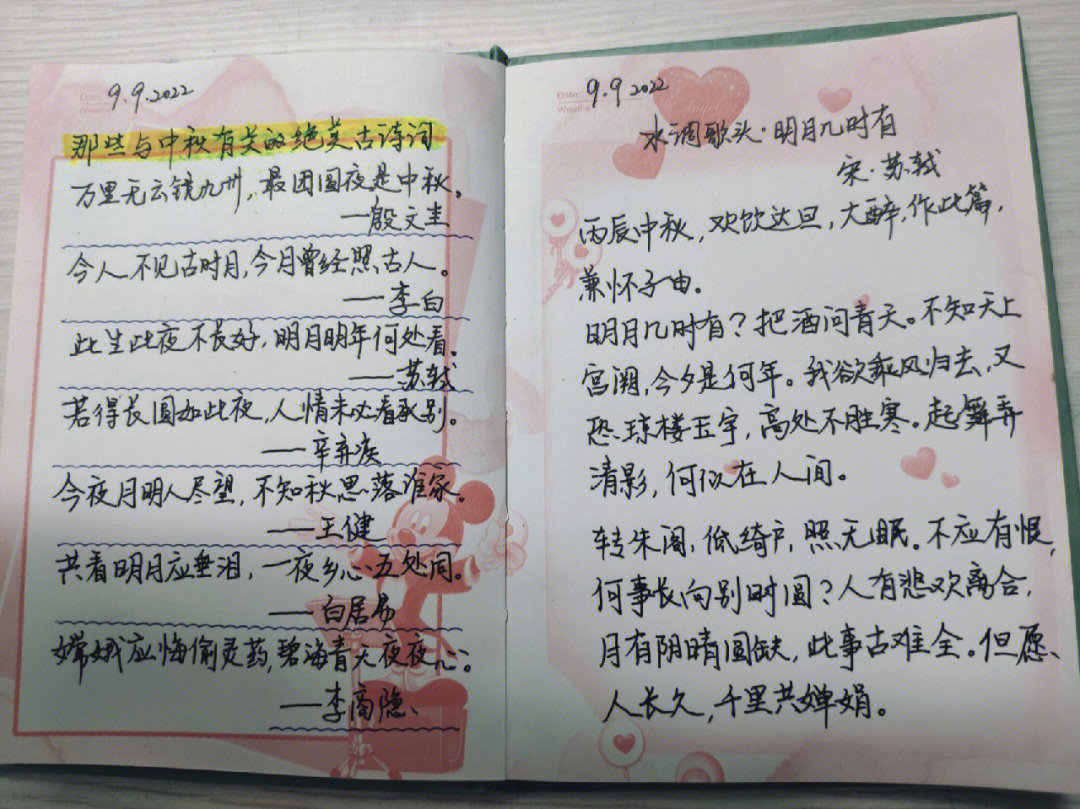 Date:
9.9.2022
Weather
那些与中秋有关的绝美古诗词
万里无云镜九州,最团圆夜是中秋。
——殷文圭
今人不见古时月,今月曾经照古人。
——李白
此生此夜不长好,明月明年何处看。
——苏轼
若得长圆如此夜,人情未必看承别。
——辛弃疾
今夜月明人尽望,不知秋思落谁家。
——王健
共看明月应垂泪,一夜乡心五处同。
——白居易
嫦娥应悔偷灵药,碧海青天夜夜心。
——李商隐、
Date:
9.9.2022
Weather
水调歌头·明月几时有
宋·苏轼
丙辰中秋,欢饮达旦,大醉,作此篇,
兼怀子由。
明月几时有?把酒问青天。不知天上
宫阙,今夕是何年。我欲乘风归去,又
恐琼楼玉宇,高处不胜寒。起舞弄
清影,何似在人间。
转朱阁,低绮户,照无眠。不应有恨,
何事长向别时圆?人有悲欢离合,
月有阴晴圆缺,此事古难全。但愿、
人长久,千里共婵娟。